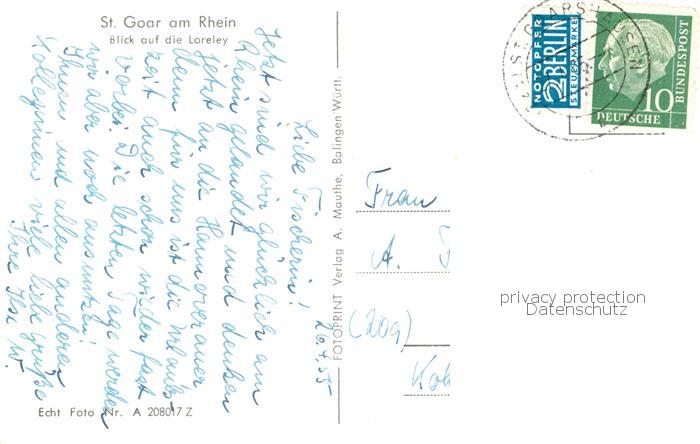 St. Goar am Rhein
Blick auf die Loreley
26.4.55
Liebe Fischerin!
Jetzt sind wir glücklich am
Rhein gelandet und denken
jetzt an die Hannoveraner
denn für uns ist die Urlaubs-
zeit auch schon wieder fast
vorbei. Die letzten Tage werden
wir aber noch ausnutzen!
Ihnen und allen anderen
Kolleginnen viele liebe Grüße
Ihre Ilse W.
Echt Foto Nr. A 208017 Z
FOTOPRINT Verlag A. Mauthe, Balingen Württ.
NOTOPFER
2 BERLIN
STEUERMARKE
10
DEUTSCHE
BUNDESPOST
Frau
A.
(20a)
privacy protection
Datenschutz